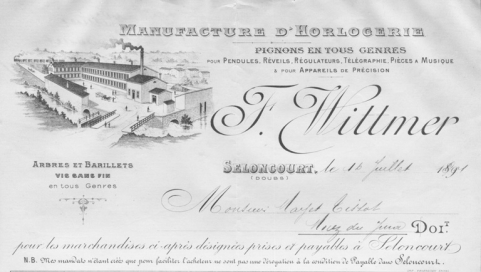 MANUFACTURE D'HORLOGERIE
PIGNONS EN TOUS GENRES
POUR PENDULES, RÉVEILS, RÉGULATEURS, TÉLÉGRAPHIE, PIÈCES À MUSIQUE
& POUR APPAREILS DE PRÉCISION
F. Wittmer
ARBRES ET BARILLETS
VIS SANS FIN
en tous Genres
SELONCOURT, le 16 Juillet
(DOUBS)
Monsieur
Doit
pour les marchandises ci-après désignées prises et payables à Seloncourt
N.B. Mes mandats n'étant créés que pour faciliter l'acheteur ne sont pas une dérogation à la condition de Payable dans Seloncourt.